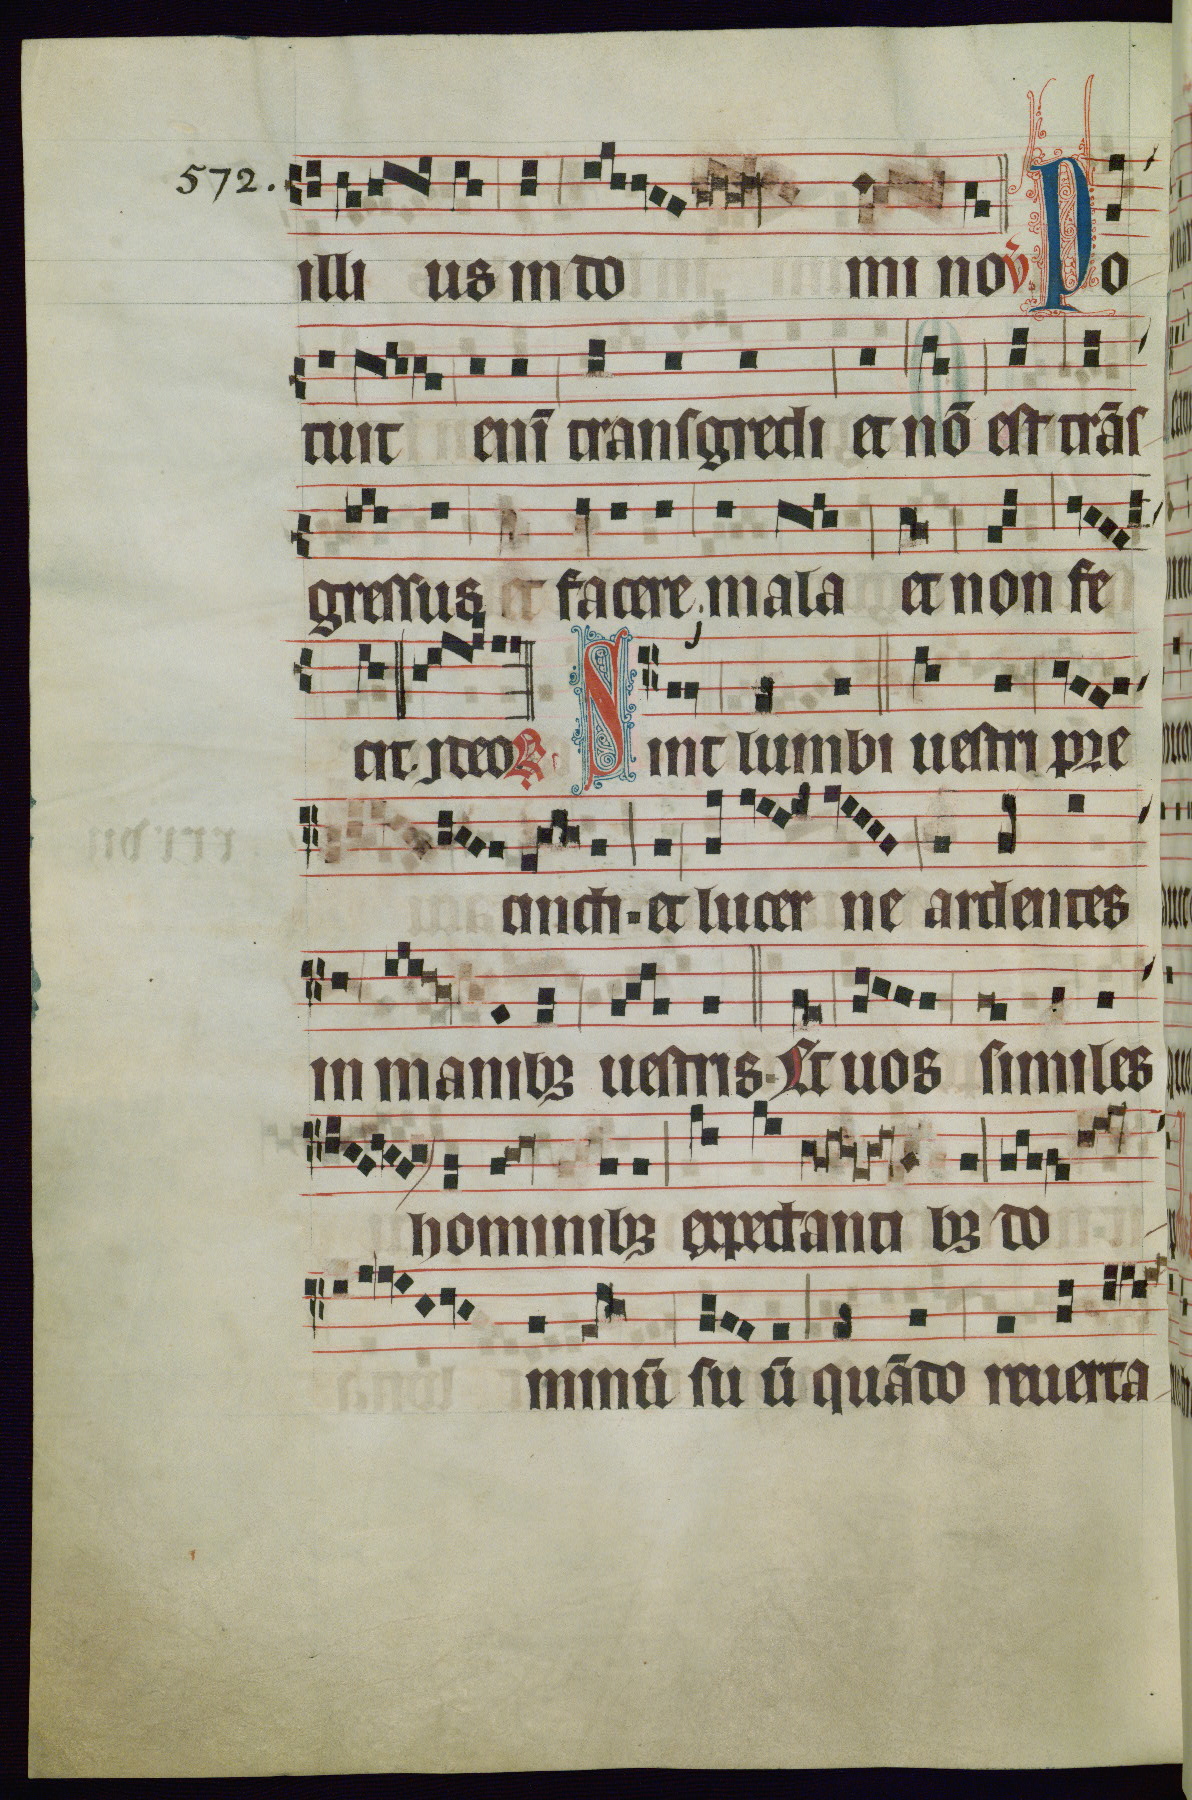 572.
illi us in do mi no ℣ Po
tuit eni᷑ transgredi et nō est trās
gressus et facere mala et non fe
cit. Ideo ℟. Sint lumbi uestri p̄re
cincti. et lucer ne ardentes
in manibꝫ uestris. Et uos similes
hominibꝫ expectanti bꝫ do
minū su ū quādo reuerta